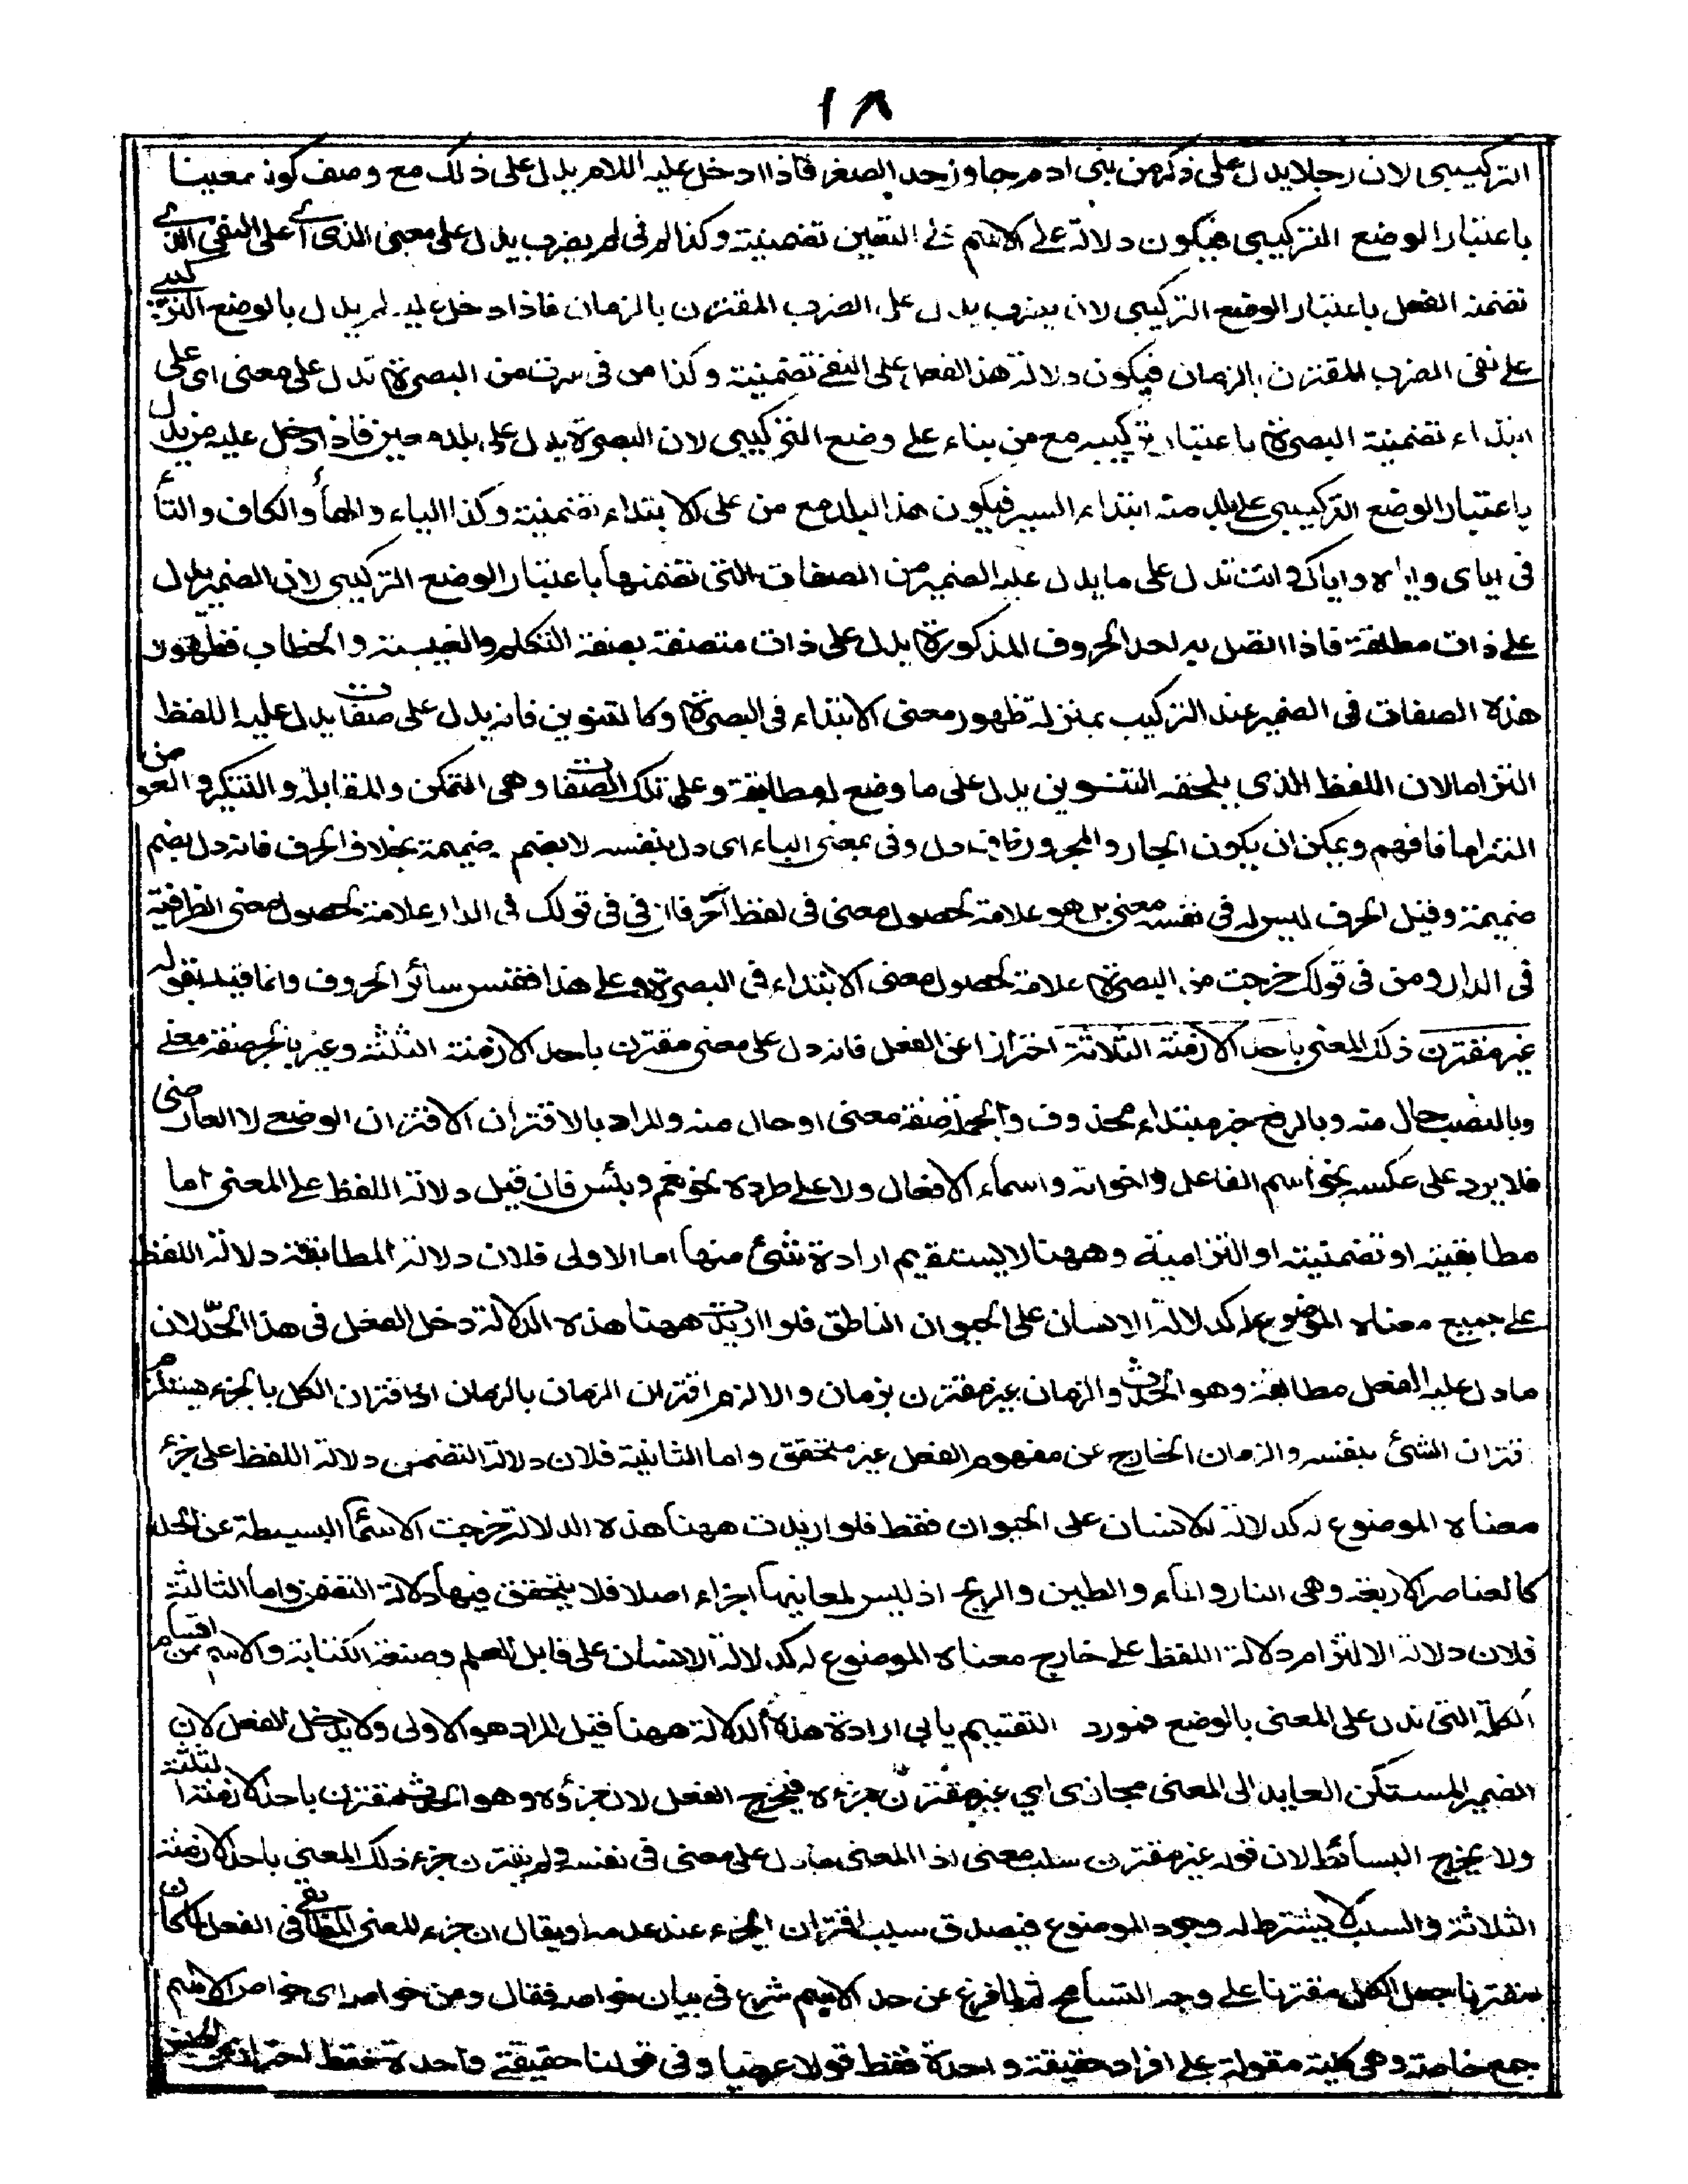 ١٨
التركيبى لان رجلا يدل على ذكر من بنى ادم جاوز حد الصغر فاذا ادخل عليه اللام يدل على ذلك مع وصف كونه معينا
باعتبار الوضع التركيبى فيكون دلالة على الاسم على التعين تضمنية وكذا لم فى لم يضرب يدل على معنى الذى اے على النفى الذے
تضمنه الفعل باعتبار الوضع التركيبى لان يضرب يدل على الضرب المقترن بالزمان فاذا دخل عليه لم يدل بالوضع التركيبے
على نفى الضرب المقترن بالزمان فيكون دلالة هذا الفعل على النفے تضمنية وكذا من فى سرت من البصرة تدل على معنى اى على
ابتداء تضمنية البصرة باعتبار تركيبه مع من بناء على وضع التركيبى لان البصرة يدل على بلدة معين فاذا دخل عليه من يدل
باعتبار الوضع التركيبى على بلد منه ابتداء السير فيكون هذا البلد مع من على الابتداء تضمنية وكذا الباء والهاء والكاف والتاء
فى اياى واياه واياك وانت تدل على ما يدل عليه الضمير من الصفات التى تضمنها باعتبار الوضع التركيبى لان الضمير يدل
على ذات مطلقة فاذا اتصل به احد الحروف المذكورة يدل على ذات متصفة بصفة التكلم والغيبة والخطاب فظهور
هذه الصفات فى الضمير عند التركيب بمنزلة ظهور معنى الابتداء فى البصرة وكالتنوين فانه يدل على صفات يدل عليه اللفظ
التزاما لان اللفظ الذى يلحقه التنوين يدل على ما وضع له مطابقة وعلى تلك الصفات وهى التمكن والمقابلة والتنكير والعوض
التزاما فافهم ويمكن ان يكون الجار والمجرور متعلق دل وفى بمعنى الباء اى دل بنفسه لا بضم ضميمة بخلاف الحرف فانه دل بضم
ضميمة وقيل الحرف ليس له فى نفسه معنى بل هو علامة لحصول معنى فى لفظ آخر فان فى فى قولك فى الدار علامة لحصول معنى الظرفية
فى الدار ومن فى قولك خرجت من البصرة علامة لحصول معنى الابتداء فى البصرة وعلى هذا فقس سائر الحروف وانما قيد بقوله
غير مقترن ذلك المعنى باحد الازمنة الثلاثة احترازا عن الفعل فانه دل على معنى مقترن باحد الازمنة الثلثة وغير بالجر صفة معنى
وبالنصب حال منه وبالرفع خبر مبتداء محذوف والجملة صفة معنى او حال منه والمراد بالاقتران الاقتران الوضعى لا العارضى
فلا يرد على عكسه نحو اسم الفاعل واخواته واسماء الافعال ولا على طرده نحو نعم وبئس فان قيل دلالة اللفظ على المعنى اما
مطابقية او تضمنية او التزامية وههنا لا يستقيم ارادة شئ منها اما الاولى فلان دلالة المطابقة دلالة اللفظ
على جميع معناه الموضوع له كدلالة الانسان على الحيوان الناطق فلو اريدت ههنا هذه الدلالة دخل الفعل فى هذا الحد لان
ما دل عليه الفعل مطابقة وهو الحدث والزمان غير مقترن بزمان والا لزم اقتران الزمان بالزمان اذ اقتران الكل بالجزء يستلزم
قتران الشئ بنفسه والزمان الخارج عن مفهوم الفعل غير متحقق واما الثانية فلان دلالة التضمن دلالة اللفظ على جزء
معناه الموضوع له كدلالة الانسان على الحيوان فقط فلو اريدت ههنا هذه الدلالة خرجت الاسماء البسيطة عن الحد
كالعناصر الاربعة وهى النار والماء والطين والريح اذ ليس لمعانيها اجزاء اصلا فلا يتحقق فيها دلالة التضمن واما الثالثة
فلان دلالة الالتزام دلالة اللفظ على خارج معناه الموضوع له كدلالة الانسان على قابل العلم وصنعة الكتابة والاسم من اقسام
الكلمة التى تدل على المعنى بالوضع فمورد التقسيم يابى ارادة هذه الدلالة ههنا قيل المراد هو الاولى ولا يدخل الفعل لان
الضمير المستكن العايد الى المعنى مجازى اى غير مقترن جزءه فيخرج الفعل لان جزؤه وهو الحدث مقترن باحد الازمنة الثلثة
ولا يخرج البسائط لان قوله غير مقترن سلب معنى اذ المعنى ما دل على معنى فى نفسه ولم يقترن جزء ذلك المعنى باحد الازمنة
الثلاثة والسلب لا يشترط له وجود الموضوع فيصدق سلب اقتران الجزء عند عدمه او يقال ان جزء المعنى المطابقى فى الفعل لما كان
مقترنا جعل الكل مقترنا على وجه التسامح ثم لما فرغ عن حد الاسم شرع فى بيان خواصه فقال ومن خواصه اى خواص الاسم
جمع خاصة وهى كلية مقولة على افراد حقيقة واحدة فقط قولا عرضيا وفى قولنا حقيقة واحدة فقط احتراز عن الجنس